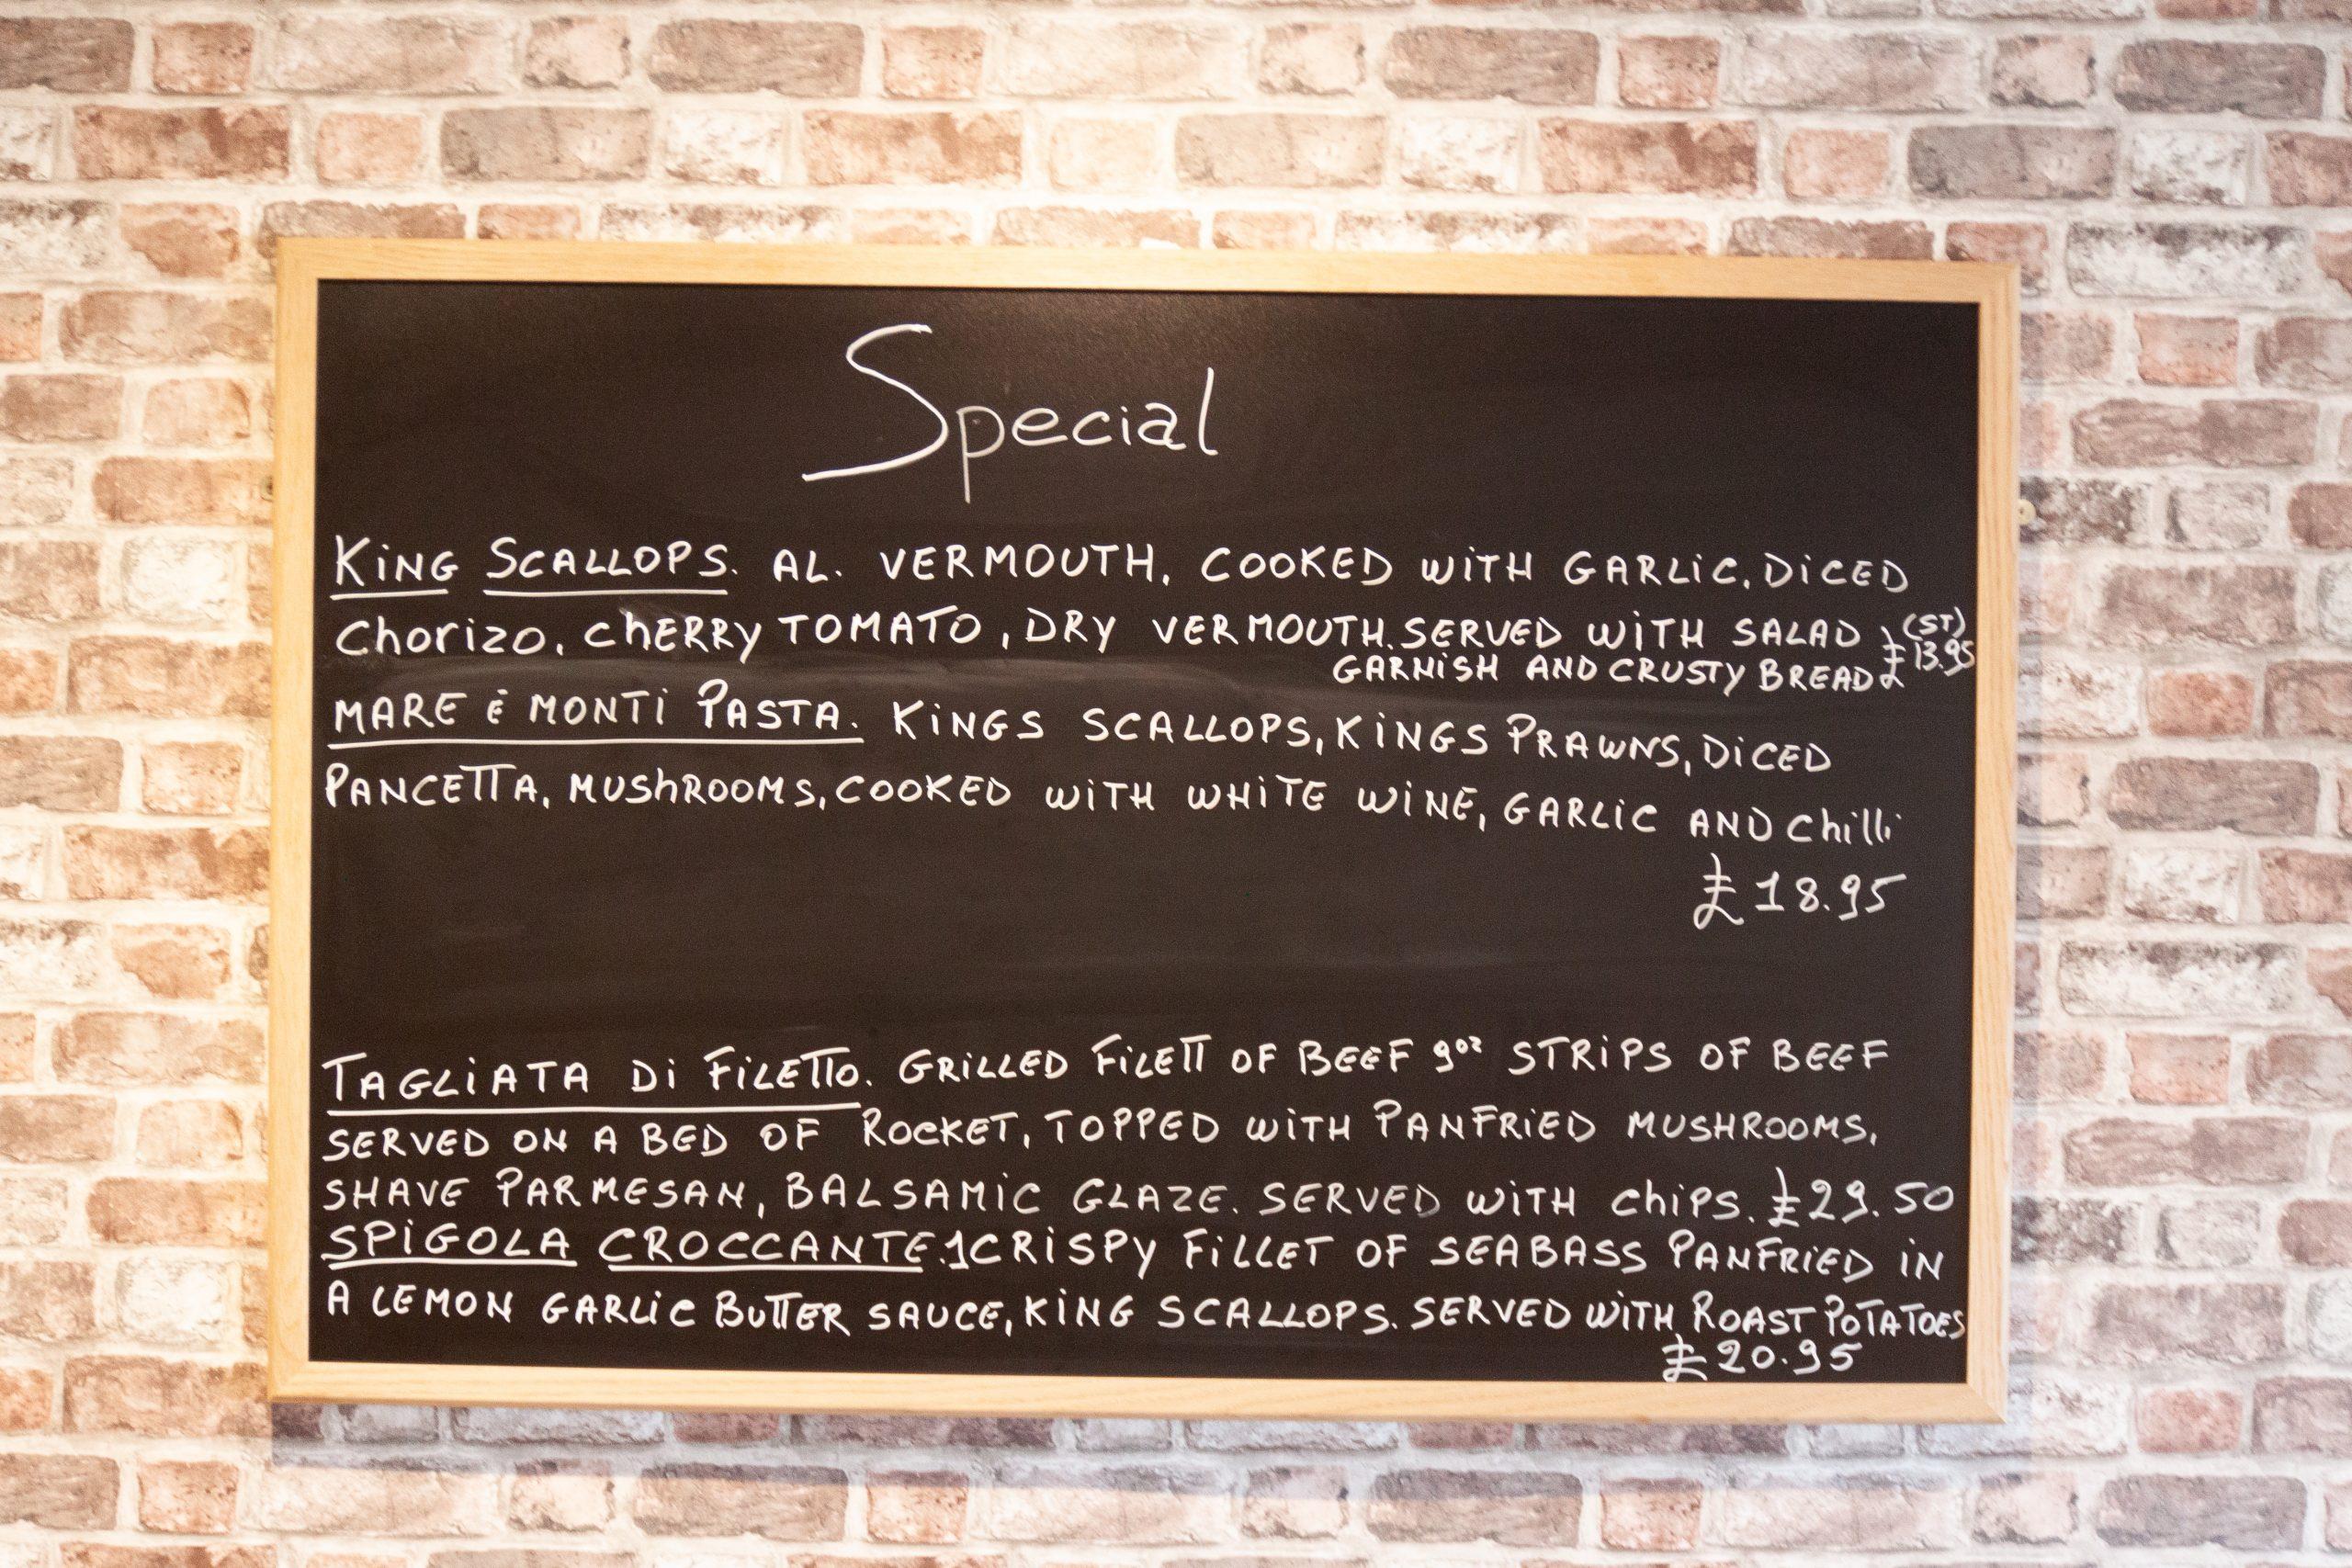 Special
KiNG SCALLOPS. AL. VERMOUTH, COOKED WiTH GARLiC, DiCED
Chorizo, chERRY TOMATO, DRY VERMOUTH. SERVED WiTH SALAD (ST)
GARNiSH AND CRUSTY BREAD £13.95
MARE É MONTi PASTA. KiNGS SCALLOPS, KiNGS PRAWNS, DiCED
PANCETTA, MUShROOMS, COOKED WiTH WHiTE WiNE, GARLiC AND Chilli
£18.95
TAGLiATA Di FiLETTO. GRiLLED FiLETT OF BEEF 9oz STRiPS OF BEEF
SERVED ON A BED OF ROCKET, TOPPED WiTH PANFRiED MUSHROOMS,
SHAVE PARMESAN, BALSAMiC GLAZE. SERVED WiTH ChiPS. £29.50
SPiGOLA CROCCANTE. 1 CRiSPY FiLLET OF SEABASS PANFRiED iN
A LEMON GARLiC BUTTER SAUCE, KiNG SCALLOPS. SERVED WiTH ROAST POTATOES
£20.95